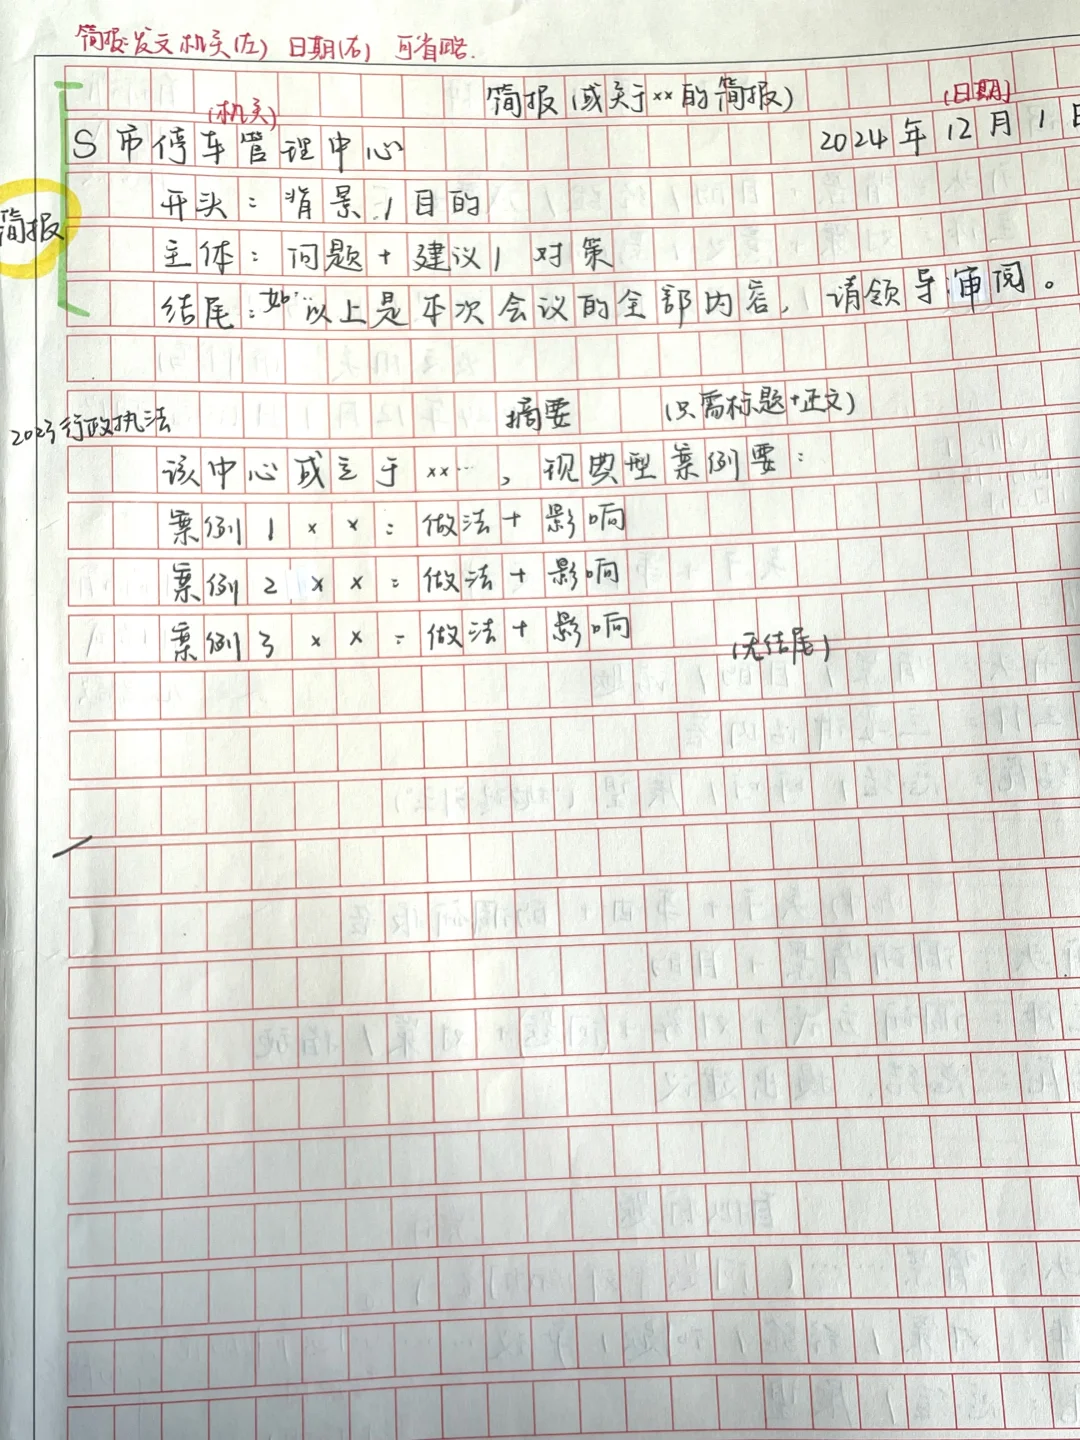 简报:发文机关(左) 日期(右) 可省略.
简报(或关于××的简报)
(机关)
(日期)
S市停车管理中心 2024年12月1日
简报
开头：背景/目的
主体：问题+建议/对策
结尾：如"以上是本次会议的全部内容，请领导审阅。
2023行政执法
摘要 (只需标题+正文)
该中心成立于××…，现典型案例要：
案例1××：做法+影响
案例2××：做法+影响
案例3××：做法+影响
(无结尾)